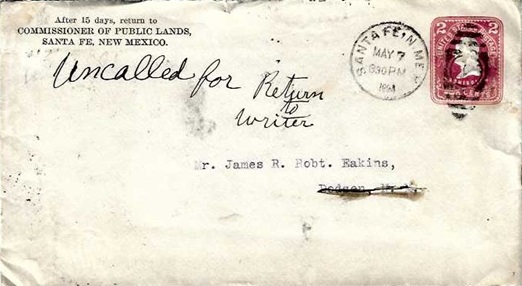 After 15 days, return to
COMMISSIONER OF PUBLIC LANDS,
SANTA FE, NEW MEXICO.
Uncalled for Return
to
Writer
SANTA FE, N. MEX.
MAY 7
830 PM
2 2
Mr. James R. Robt. Eakins,